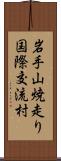 岩手山焼走り
国際交流村